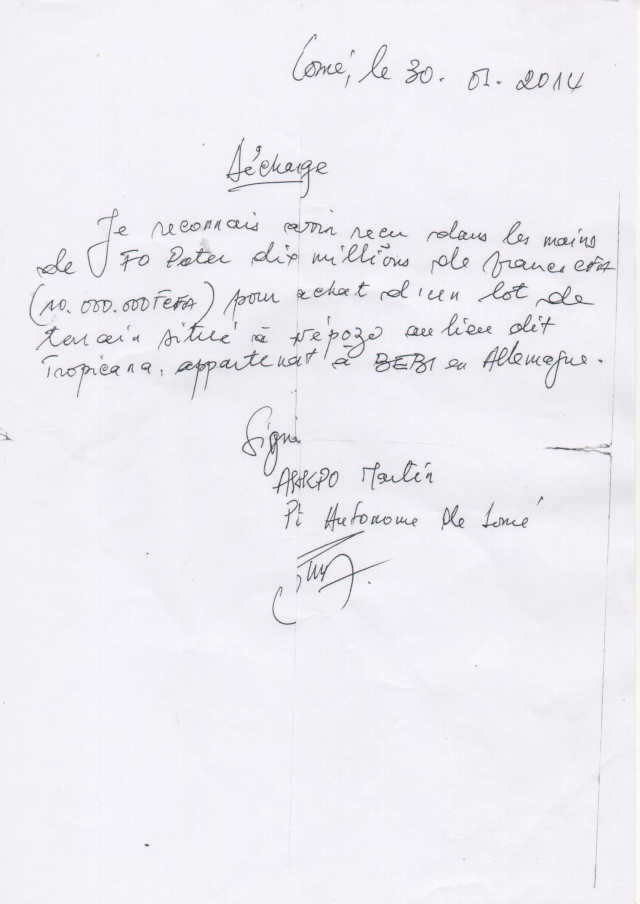 Lomé, le 30. 01. 2014
Décharge
Je reconnais avoir reçu dans les mains
de FO Pater dix millions de francs CFA
(10.000.000 FCFA) pour achat d'un lot de
terrain situé à Népozo au lieu dit
Tropicana, appartenat à BEBI en Allemagne.
Signé
AKAKPO Martin
Pt Autonome de Lomé